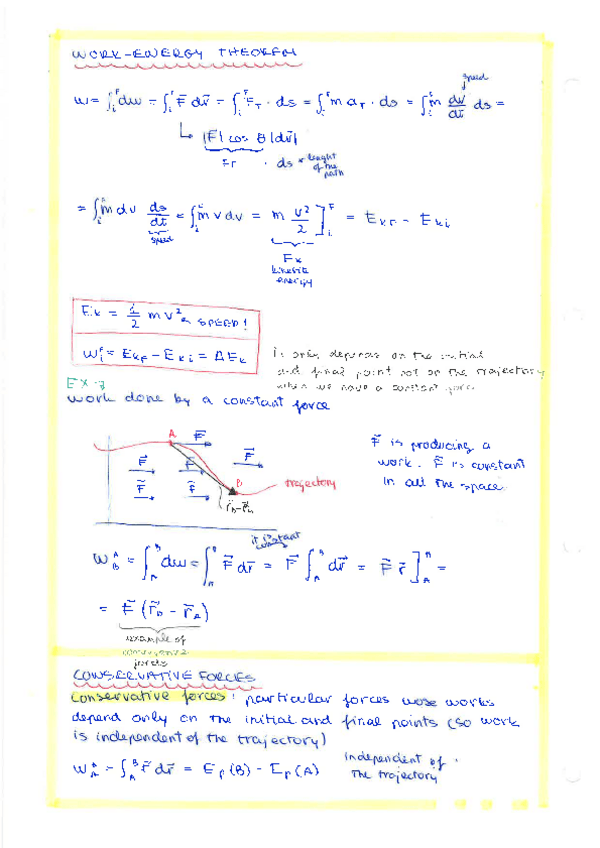 WORK-ENERGY THEOREM
speed
W = ∫ᵢᶠ dw = ∫ᵢᶠ F⃗ dr⃗ = ∫ᵢᶠ F_T · ds = ∫ᵢᶠ m a_T · ds = ∫ᵢᶠ m dv/dt ds =
↳ |F⃗| cos θ |dr⃗|
F_T · ds → lenght of the path
= ∫ᵢᶠ m dv ds/dt = ∫ᵢᶠ m v dv = m v²/2 ]ᵢᶠ = E_kf - E_ki
speed
E_k
kinetic
energy
E_k = 1/2 m v² SPEED!
Wᵢᶠ = E_kf - E_ki = ΔE_k
it only depends on the initial
and final point not on the trajectory
when we have a constant force
EX →
work done by a constant force
A F⃗
F⃗ F⃗ F⃗
F⃗ F⃗ B trajectory
r⃗_B - r⃗_A
F⃗ is producing a
work. F⃗ is constant
in all the space
it is constant
W_B^A = ∫_A^B dw = ∫_A^B F⃗ dr⃗ = F⃗ ∫_A^B dr⃗ = F⃗ r⃗ ]_A^B =
= F⃗ (r⃗_B - r⃗_A)
example of
forces
CONSERVATIVE FORCES
Conservative forces: particular forces wose works
depend only on the initial and final points (so work
is independent of the trajectory)
W_A^B = ∫_A^B F⃗ dr⃗ = E_p(B) - E_p(A)
independent of
the trajectory